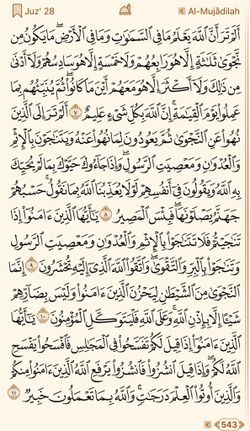 Juz' 28 Al-Mujādilah
أَلَمْ تَرَ أَنَّ ٱللَّهَ يَعْلَمُ مَا فِى ٱلسَّمَٰوَٰتِ وَمَا فِى ٱلْأَرْضِ ۖ مَا يَكُونُ مِن
نَّجْوَىٰ ثَلَٰثَةٍ إِلَّا هُوَ رَابِعُهُمْ وَلَا خَمْسَةٍ إِلَّا هُوَ سَادِسُهُمْ وَلَآ أَدْنَىٰ
مِن ذَٰلِكَ وَلَآ أَكْثَرَ إِلَّا هُوَ مَعَهُمْ أَيْنَ مَا كَانُوا۟ ۖ ثُمَّ يُنَبِّئُهُم بِمَا
عَمِلُوا۟ يَوْمَ ٱلْقِيَٰمَةِ ۚ إِنَّ ٱللَّهَ بِكُلِّ شَىْءٍ عَلِيمٌ ٧ أَلَمْ تَرَ إِلَى ٱلَّذِينَ
نُهُوا۟ عَنِ ٱلنَّجْوَىٰ ثُمَّ يَعُودُونَ لِمَا نُهُوا۟ عَنْهُ وَيَتَنَٰجَوْنَ بِٱلْإِثْمِ
وَٱلْعُدْوَٰنِ وَمَعْصِيَتِ ٱلرَّسُولِ وَإِذَا جَآءُوكَ حَيَّوْكَ بِمَا لَمْ يُحَيِّكَ
بِهِ ٱللَّهُ وَيَقُولُونَ فِىٓ أَنفُسِهِمْ لَوْلَا يُعَذِّبُنَا ٱللَّهُ بِمَا نَقُولُ ۚ حَسْبُهُمْ
جَهَنَّمُ يَصْلَوْنَهَا ۖ فَبِئْسَ ٱلْمَصِيرُ ٨ يَٰٓأَيُّهَا ٱلَّذِينَ ءَامَنُوٓا۟ إِذَا
تَنَٰجَيْتُمْ فَلَا تَتَنَٰجَوْا۟ بِٱلْإِثْمِ وَٱلْعُدْوَٰنِ وَمَعْصِيَتِ ٱلرَّسُولِ
وَتَنَٰجَوْا۟ بِٱلْبِرِّ وَٱلتَّقْوَىٰ ۖ وَٱتَّقُوا۟ ٱللَّهَ ٱلَّذِىٓ إِلَيْهِ تُحْشَرُونَ ٩ إِنَّمَا
ٱلنَّجْوَىٰ مِنَ ٱلشَّيْطَٰنِ لِيَحْزُنَ ٱلَّذِينَ ءَامَنُوا۟ وَلَيْسَ بِضَآرِّهِمْ
شَيْـًٔا إِلَّا بِإِذْنِ ٱللَّهِ ۚ وَعَلَى ٱللَّهِ فَلْيَتَوَكَّلِ ٱلْمُؤْمِنُونَ ١٠ يَٰٓأَيُّهَا
ٱلَّذِينَ ءَامَنُوٓا۟ إِذَا قِيلَ لَكُمْ تَفَسَّحُوا۟ فِى ٱلْمَجَٰلِسِ فَٱفْسَحُوا۟ يَفْسَحِ
ٱللَّهُ لَكُمْ ۖ وَإِذَا قِيلَ ٱنشُزُوا۟ فَٱنشُزُوا۟ يَرْفَعِ ٱللَّهُ ٱلَّذِينَ ءَامَنُوا۟ مِنكُمْ
وَٱلَّذِينَ أُوتُوا۟ ٱلْعِلْمَ دَرَجَٰتٍ ۚ وَٱللَّهُ بِمَا تَعْمَلُونَ خَبِيرٌ ١١
543